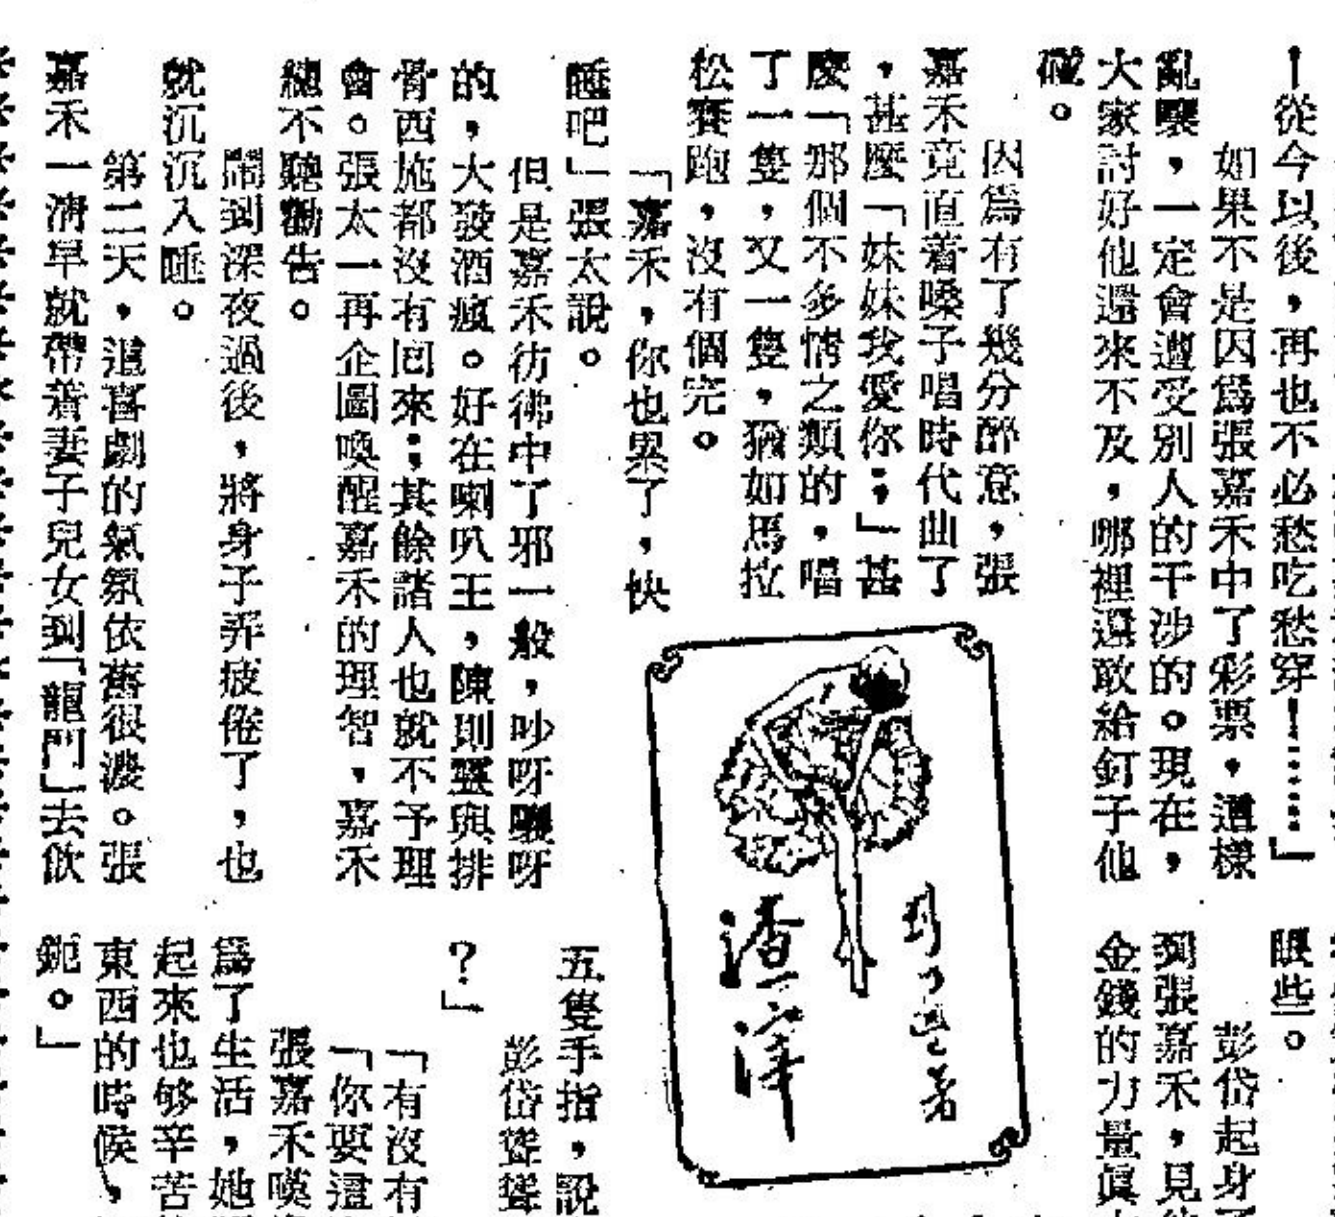 │從今以後，再也不必愁吃愁穿│……」
如果不是因爲張嘉禾中了彩票，這樣
亂嚷，一定會遭受別人的干涉的。現在，
大家討好他還來不及，哪裡還敢給釘子他
碰。
因爲有了幾分醉意，張
嘉禾竟直着嗓子唱時代曲了
，甚麼「妹妹我愛你；」甚
麼「那個不多情之類的，唱
了一隻，又一隻，猶如馬拉
松賽跑，沒有個完。
「嘉禾，你也累了，快
睡吧」張太說。
但是嘉禾彷彿中了邪一般，吵呀嚷呀
的，大發酒瘋。好在喇叭王，陳則靈與排
骨西施都沒有囘來；其餘諸人也就不予理
會。張太一再企圖喚醒嘉禾的理智，嘉禾
總不聽勸告。
鬧到深夜過後，將身子弄疲倦了，也
就沉沉入睡。
第二天，這喜劇的氣氛依舊很濃。張
嘉禾一清早就帶着妻子兒女到「龍門」去飲
著
渣滓
眼些。
彭岱起身
到張嘉禾，見
金錢的力量眞
五隻手指，說
彭岱聳聳
？」
「有沒有
「你要這
張嘉禾嘆
爲了生活，她
起來也够辛苦
東西的時候，
鈪。」